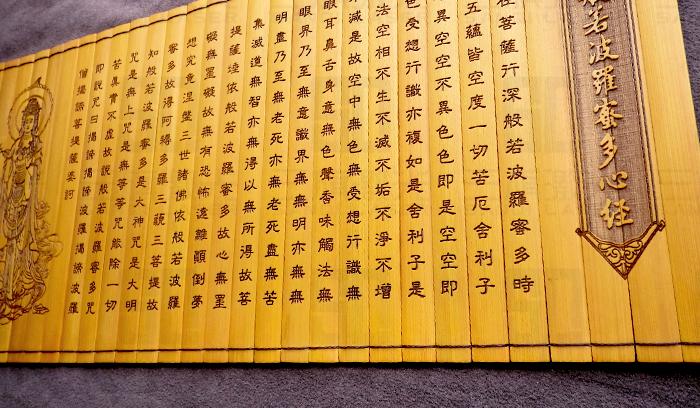 般若波羅蜜多心經
在菩薩行深般若波羅蜜多時
五蘊皆空度一切苦厄舍利子
異空空不異色色即是空空即
色受想行識亦復如是舍利子
法空相不生不滅不垢不淨不增
不減是故空中無色無受想行識無
眼耳鼻舌身意無色聲香味觸法無
眼界乃至無意識界無無明亦無無
明盡乃至無老死亦無老死盡無苦
集滅道無智亦無得以無所得故菩
提薩埵依般若波羅蜜多故心無罣
礙無罣礙故無有恐怖遠離顛倒夢
想究竟涅槃三世諸佛依般若波羅
蜜多故得阿耨多羅三藐三菩提故
知般若波羅蜜多是大神咒是大明
咒是無上咒是無等等咒能除一切
苦真實不虛故說般若波羅蜜多咒
即說咒曰揭諦揭諦波羅揭諦波羅
僧揭諦菩提薩婆訶